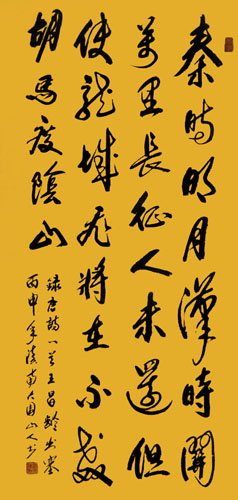 秦時明月漢時關
萬里長征人未還但
使龍城飛將在不教
胡馬度陰山
錄唐詩一首王昌齡出塞
丙申年陵南山人书